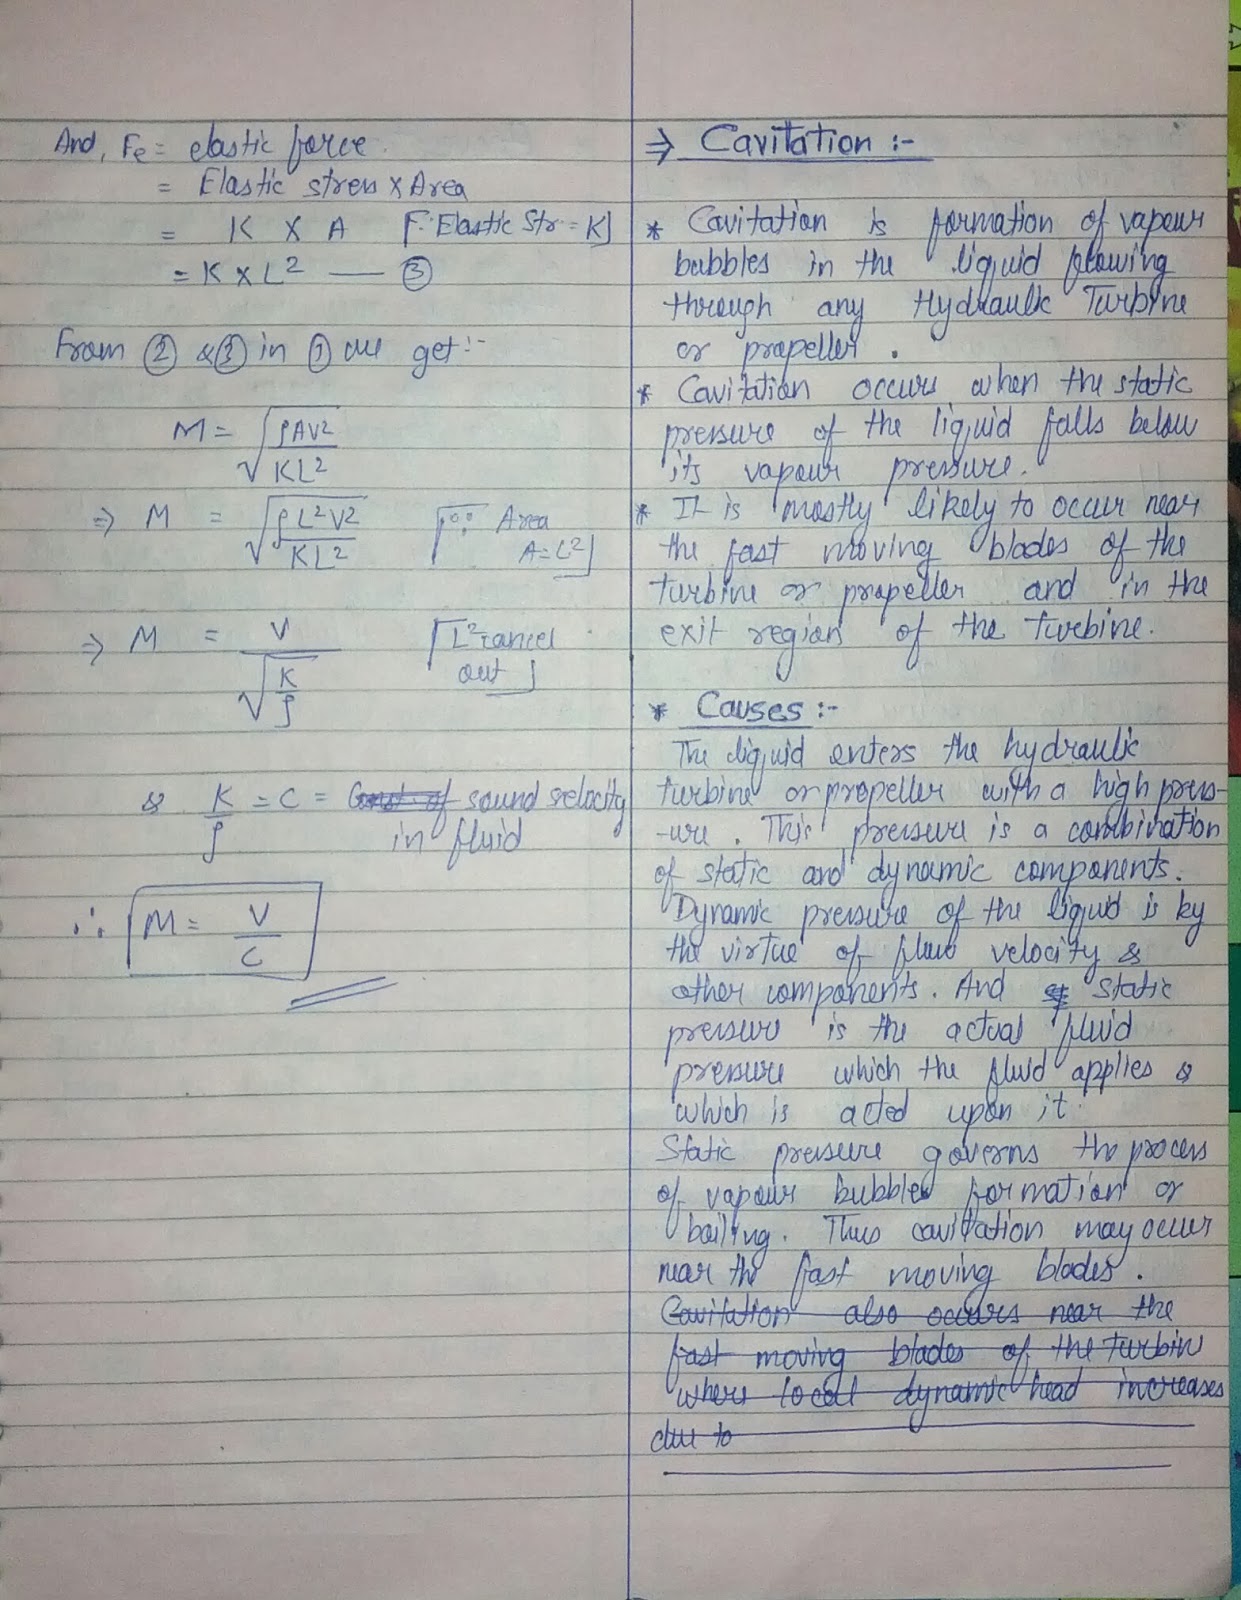 And, Fe = elastic force.
= Elastic stress × Area
= K × A [∵ Elastic Str = K]
= K × L² — ③
From ② & ③ in ① we get:-
M = √(ρAV²/KL²)
⇒ M = √(ρL²V²/KL²) [∵ Area
A = L²]
⇒ M = V/√(K/ρ) [L² cancel
out]
& K/ρ = C = Const. of sound velocity
in fluid
∴ M = V/C
⇒ Cavitation :-
* Cavitation is formation of vapour
bubbles in the liquid flowing
through any Hydraulic Turbine
or propeller.
* Cavitation occurs when the static
pressure of the liquid falls below
its vapour pressure.
* It is mostly likely to occur near
the fast moving blades of the
turbine or propeller and in the
exit region of the turbine.
* Causes :-
The liquid enters the hydraulic
turbine or propeller with a high press-
-ure. This pressure is a combination
of static and dynamic components.
Dynamic pressure of the liquid is by
the virtue of fluid velocity &
other components. And static
pressure is the actual fluid
pressure which the fluid applies &
which is acted upon it.
Static pressure governs the process
of vapour bubble formation or
boiling. Thus cavitation may occur
near the fast moving blades.
Cavitation also occurs near the
fast moving blades of the turbin
where local dynamic head increases
due to